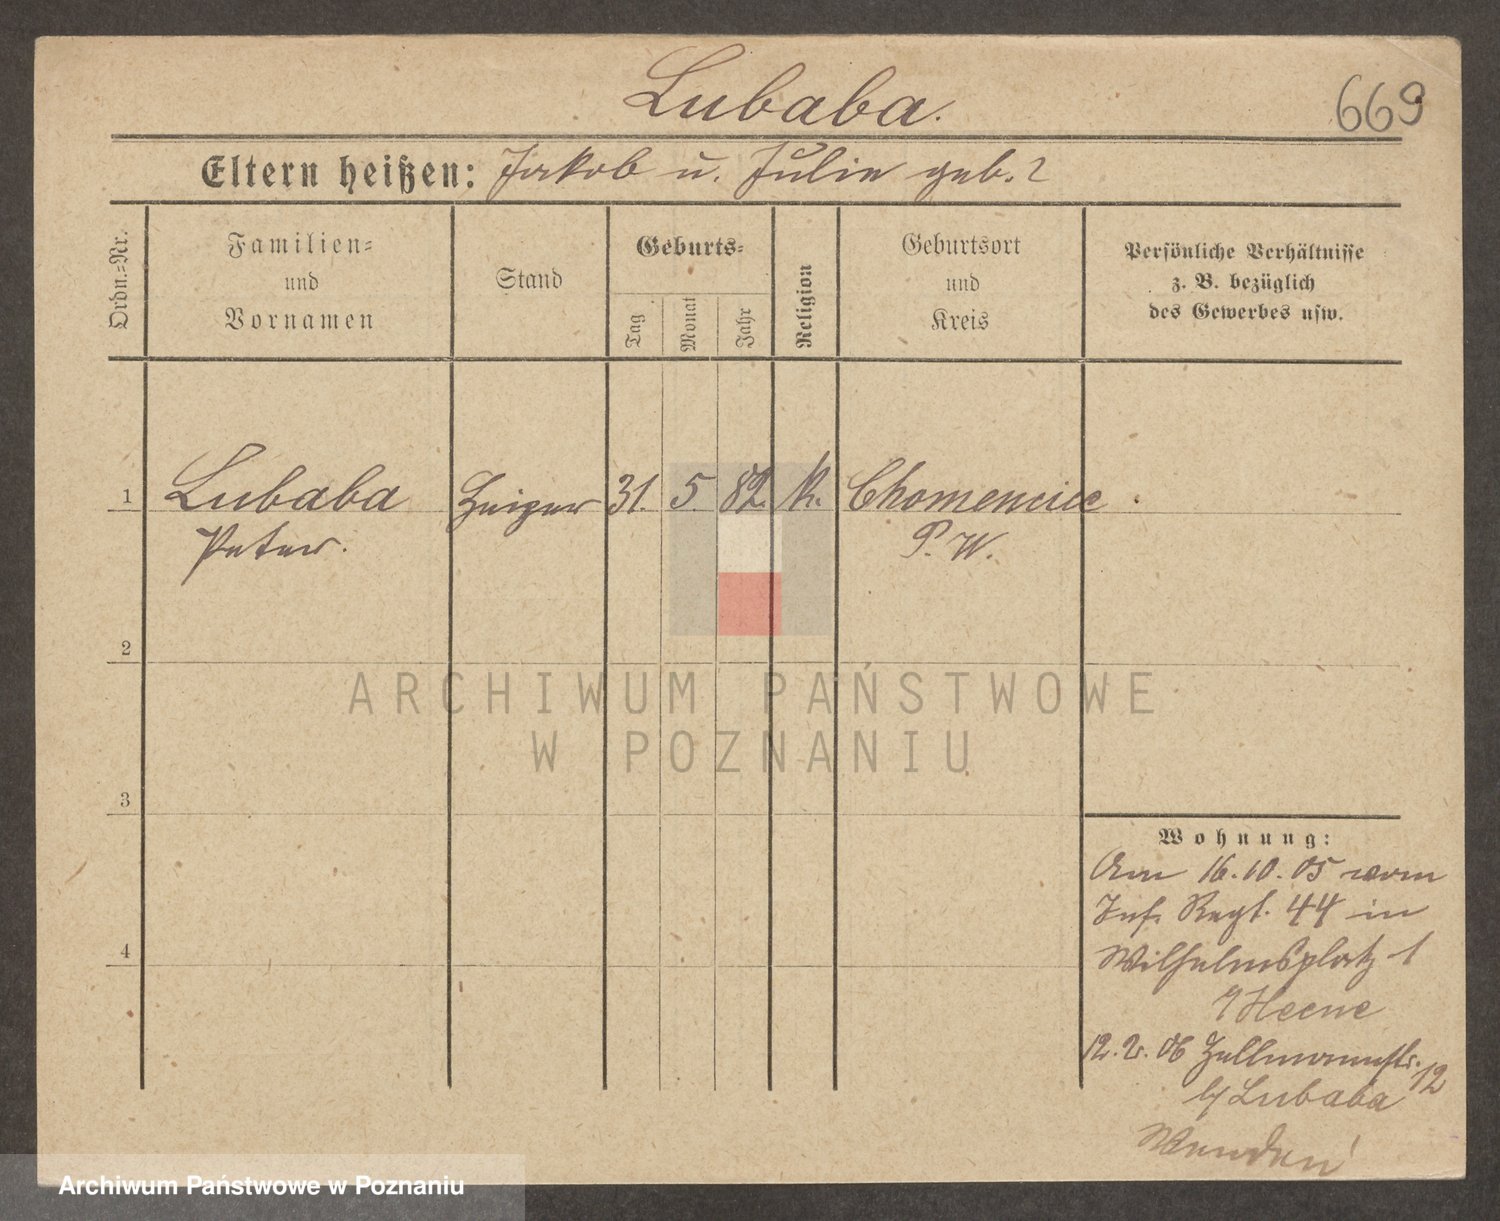 Lubaba.
669
Eltern heißen: Jakob u. Julie geb. ?
Ordn.=Nr.
Familien=
und
Vornamen
Stand
Geburts=
Tag
Monat
Jahr
Religion
Geburtsort
und
Kreis
Persönliche Verhältnisse
z. B. bezüglich
des Gewerbes usw.
1 Lubaba Heizer 31. 5. 82. k. Chomencice
Peter. P. W.
2
3
4
Wohnung:
Am 16.10.05 vom
Inf. Regt. 44 in
Wilhelmsplatz 1
12.2.06 12
b/ Lubaba
ARCHIWUM PAŃSTWOWE
W POZNANIU
Archiwum Państwowe w Poznaniu